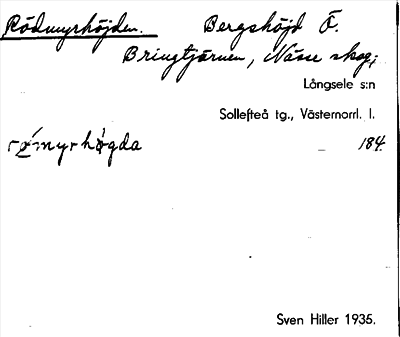 Rödmyrhöjden. Bergshöjd Ö.
Bringtjärnen, Nässe skog;
Långsele s:n
Sollefteå tg., Västernorrl. l.
184.
Sven Hiller 1935.